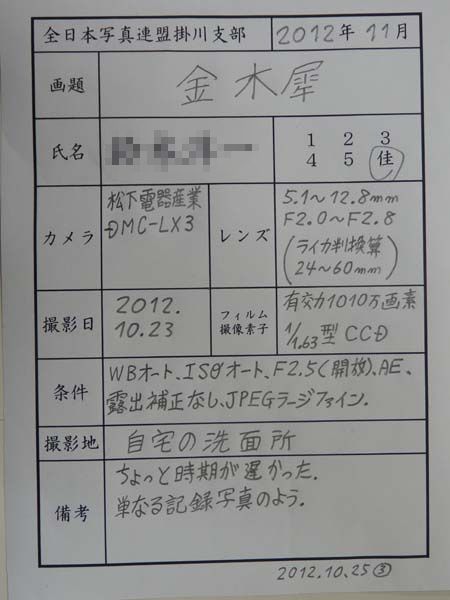 全日本写真連盟掛川支部 2012年 11月
画題 金木犀
氏名
1 2 3
4 5 佳
カメラ 松下電器産業
DMC-LX3
レンズ 5.1〜12.8mm
F2.0〜F2.8
(ライカ判換算
24〜60mm)
撮影日 2012.
10.23
フィルム
撮像素子
有効1010万画素
1/1.63型 CCD
条件 WBオート、ISOオート、F2.5(開放)、AE、
露出補正なし、JPEGラージファイン.
撮影地 自宅の洗面所
備考 ちょっと時期が遅かった.
単なる記録写真のよう.
2012.10.25③